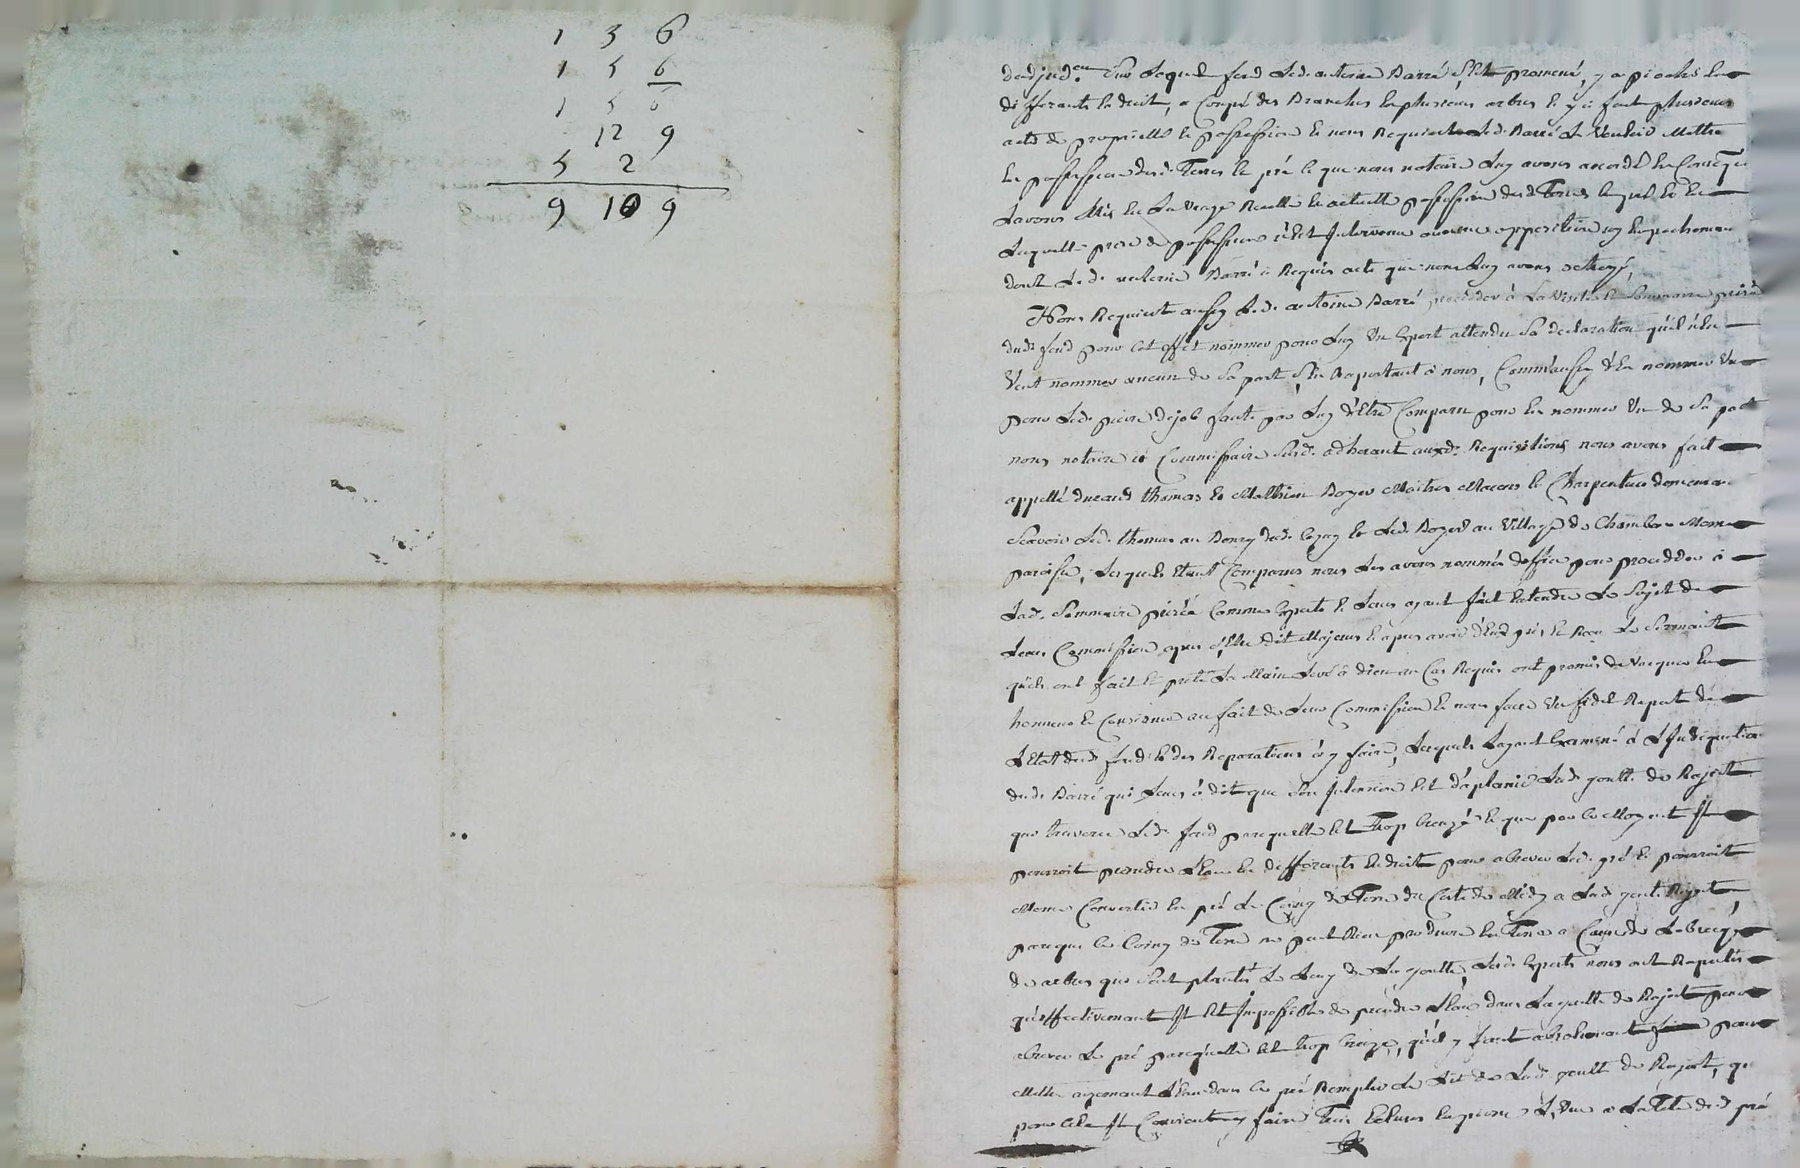 1 5 6
1 5 6
1 5 6
12 9
5 2
9 10 9
dadjudon. Sur lequel fond led. antoine Barré s'est promené, y a pioché en
differants endroit, a Coupé des Branches en plusieurs arbres et y a fait plusieurs
acte de proprieté et possession et nous Requiert led. Barré de Vouloir Mettre
en possession desd. Terres et pré ce que nous notaire luy avons accordé en Conseqce
Lavons Mis en La vraye Reelle et actuelle possession desd. Terres et pré et en
Laquelle prise de possession n'est Intervenu aucune opposition ny empechement
dont led. antoine Barré a Requis acte que nous luy avons octroyé,
Nous Requiert aussy led. antoine Barré proceder à La Visite et Sommaire prisée
dud. fond pour cet effet nommer pour luy Un Expert attendu Sa declaration qu'il n'en
Veut nommer aucun de Sa part, S'en Raportant à nous, Comm'aussy d'en nommer Un
pour led. pierre dejob faute par luy d'être Comparu pour en nommer Un de Sa part
nous notaire et Commissaire Susd. adherant auxd. Requisitions nous avons fait
appellé durand thomas et Matthieu Boyer Maitres Macons et Charpentier demeurant
Scavoir led. thomas au Bourg dud. et led. Boyer au Village de Chambon Meme
paroisse, Lesquels étant Comparus nous Les avons nommés doffice pour proceder à
Lad. Sommaire prisée Comme Experts et Leurs ayant fait Entendre Le Sujet de
Leur Commission apres s'être dit Majeurs et apres avoir d'eux pris et Recu Le Sermant
qu'ils ont fait et prêté La Main Levé à dieu au Cas Requis ont promis de Vacquer en
honneur et Consience au fait de Leur Commission et nous faire Un fidel Raport de
L'Etat dud. fond et des Reparations à y faire, Lesquels Layant Examiné à L'Indiquation
dud. Barré qui Leurs à dit que Son Intension est d'aplanir Lad. goutte de Rajat
qui traverse Led. fond parcequelle est trop Creuzé et que par ce Moyent Il
pourroit prendre L'eau en differants Endroit pour abrever Led. pré et pourroit
Meme Convertir en pré Le Coing de Terre du Coté de Midy a Lad. goutte Rajat,
parceque ce Coing de Terre ne peut Rien produire en Terre a Cause de
de arbres qui Sont plantés Le Long de La goutte, Lesd. Experts nous ont Raportés
qu'effectivement Il est Impossible de prendre L'eau dans La goutte de Rajat pour
abrever Le pré parcequelle est trop Creuze, qu'il y faut absolument pour
Mettre L'eau dans ce pré Remplir Le Lit de Lad. goutte de Rajat, que
pour cela Il Convient y faire Trois Ecluses en pierre L'Une a La Tete dud. pré